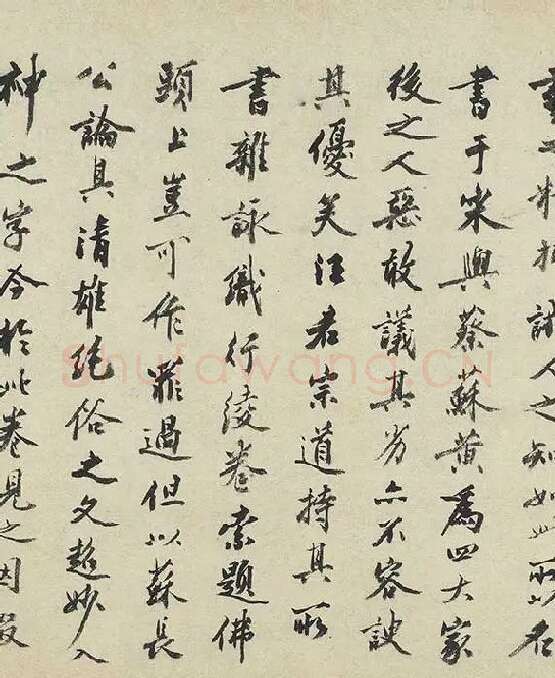 人之知如此所以名
書于宋與蔡蘇黃為四大家
後之人惡敢議其劣亦不容諛
其優美汪君宗道持其所
書雜詠織行綾卷索題佛
頭上豈可作罪過但以蘇長
公論其清雄絕俗之文超妙入
神之字今於此卷見之因
Shufawang.CN